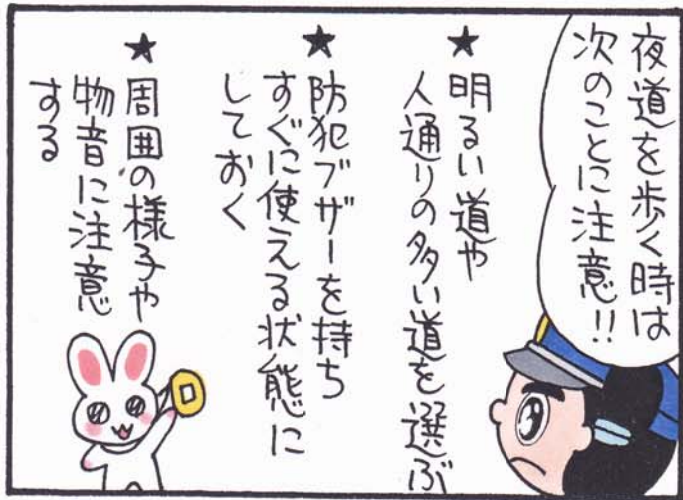 夜道を歩く時は
次のことに注意!!
★明るい道や
人通りの多い道を選ぶ
★防犯ブザーを持ち
すぐに使える状態に
しておく
★周囲の様子や
物音に注意
する